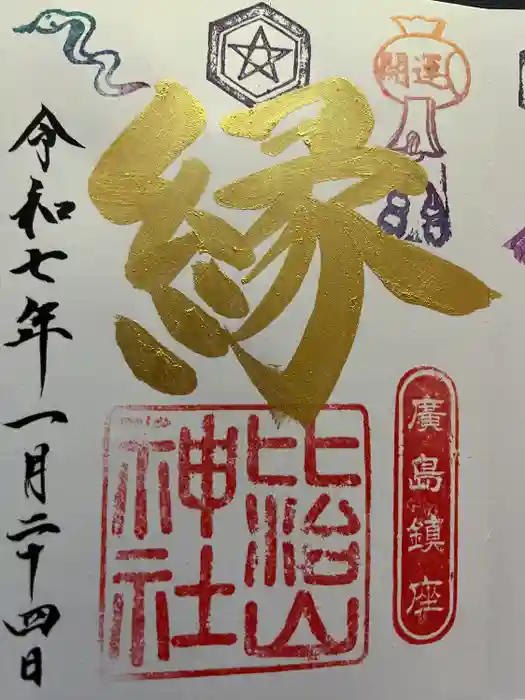 開運
縁
廣島鎮座
比治山
神社
令和七年一月二十四日